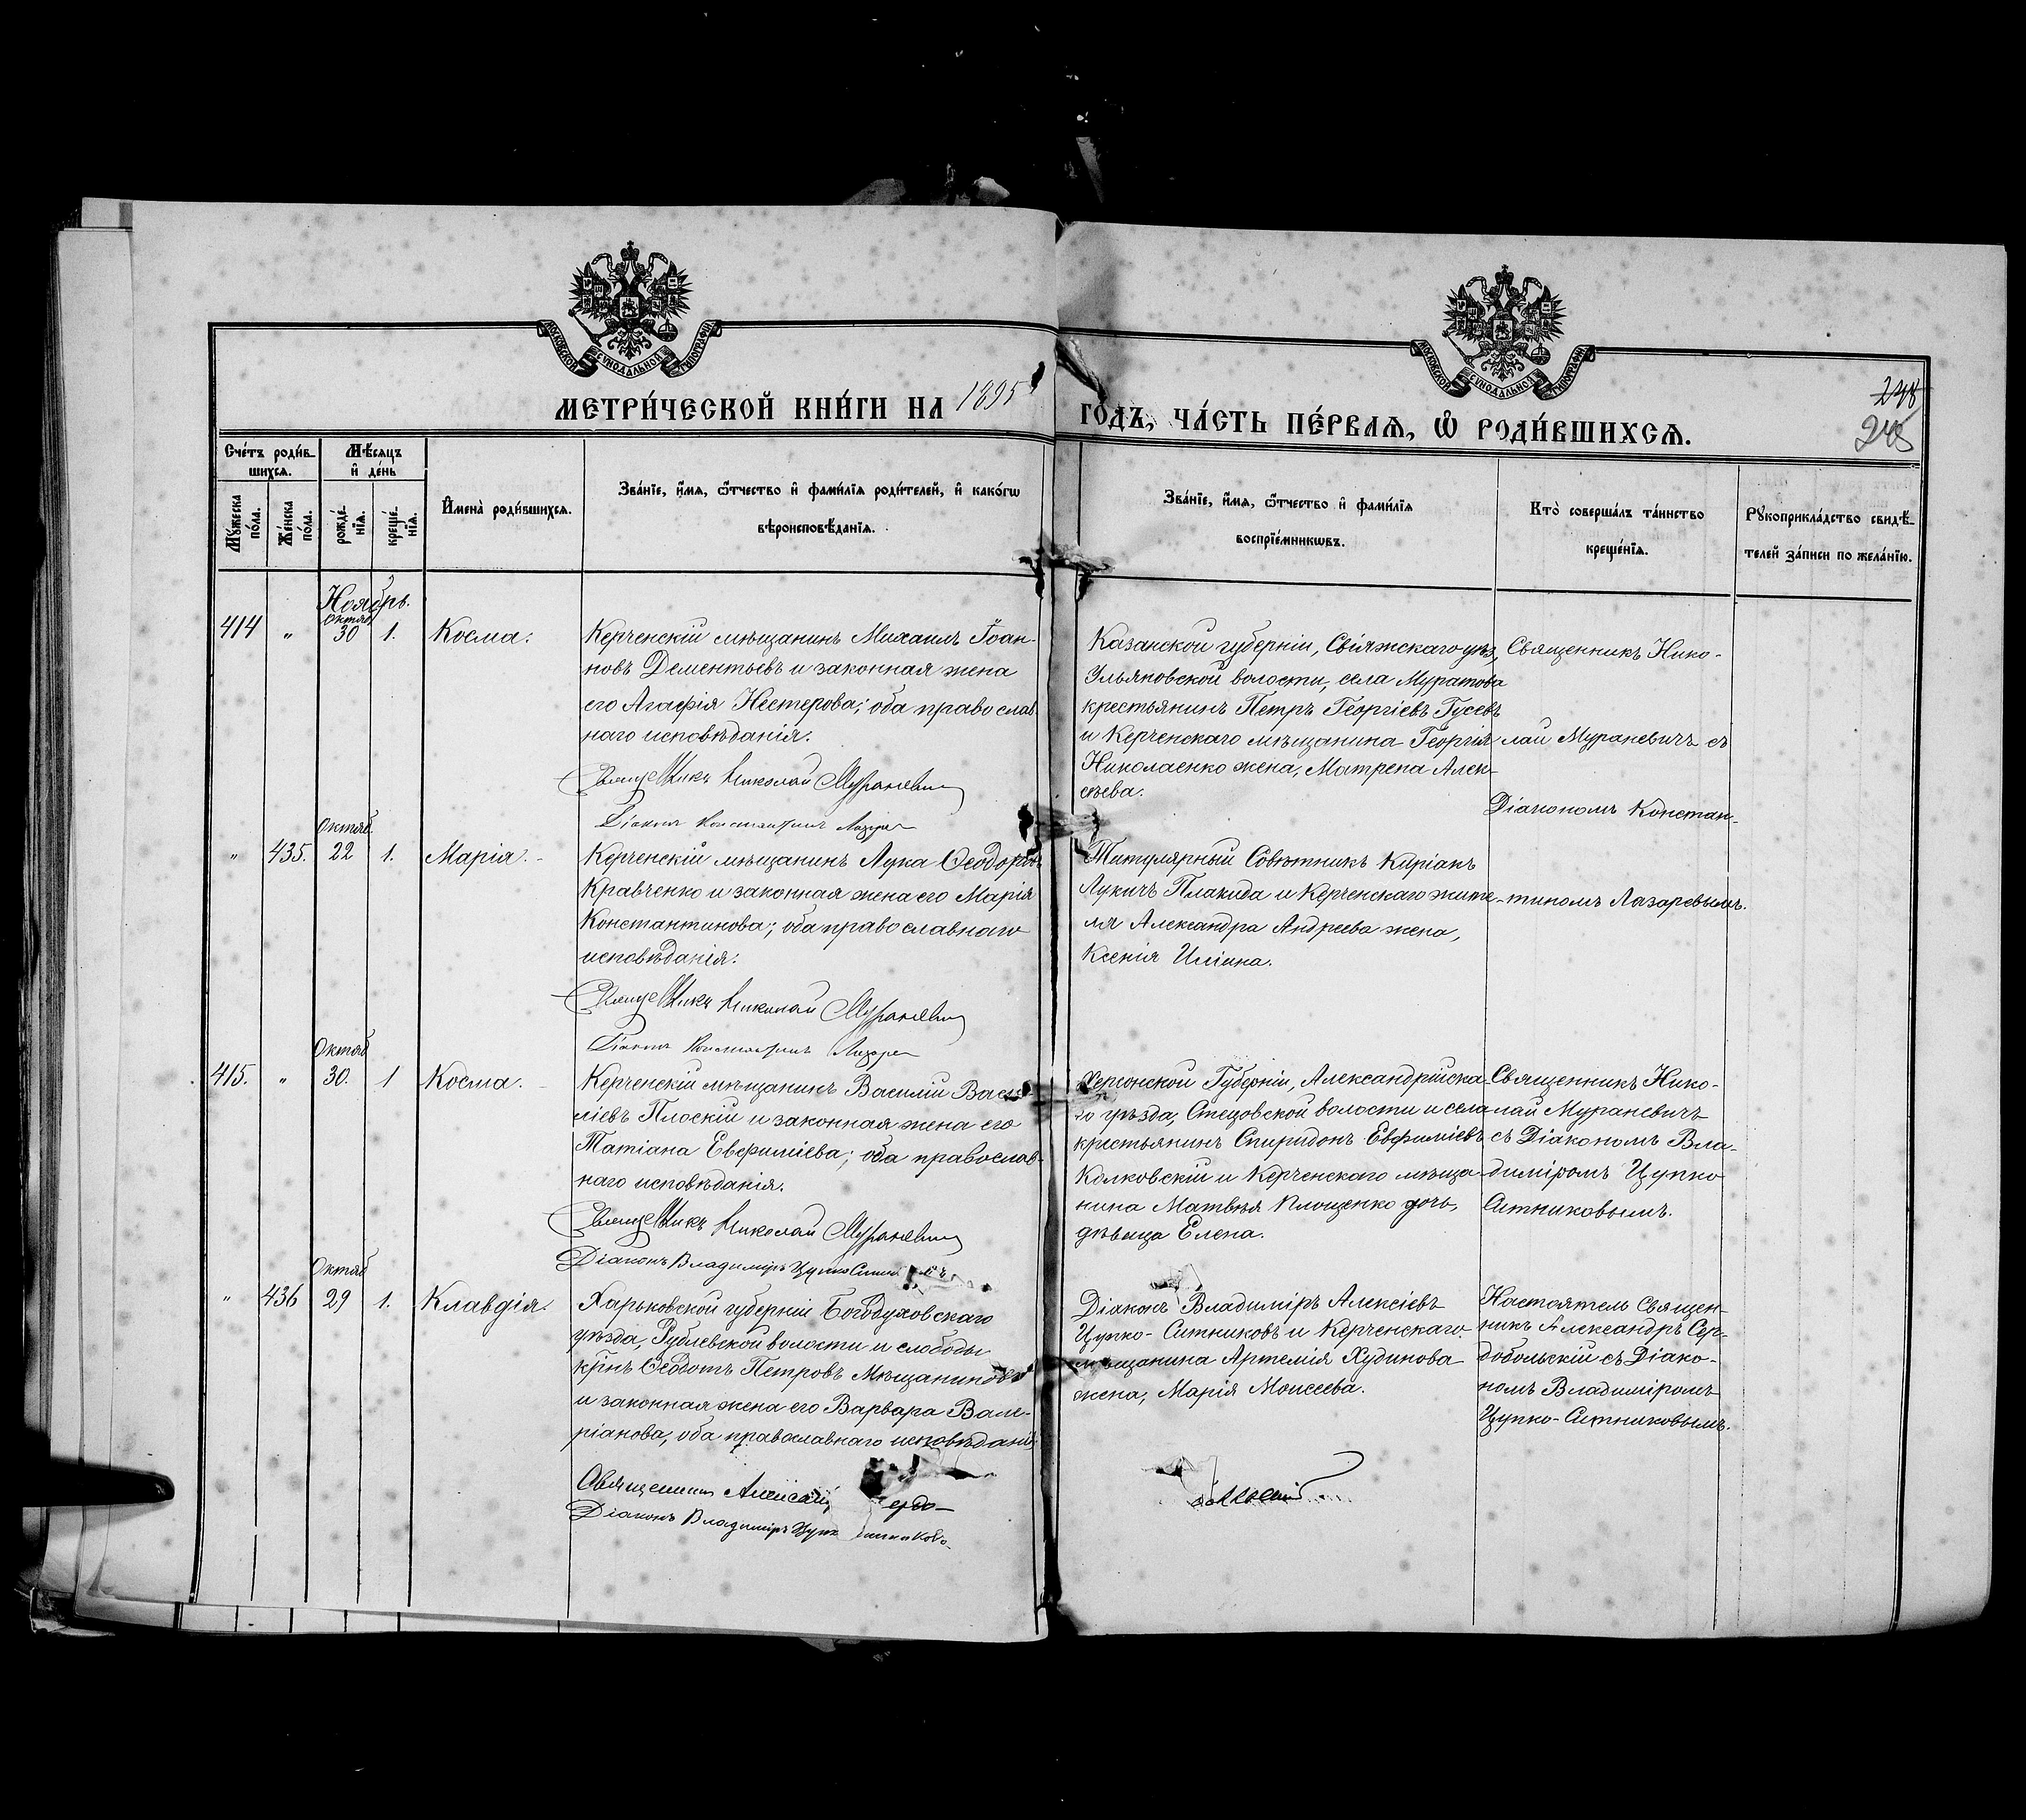 МОСКОВСКОЙ СУНОДАЛЬНОЙ ТИПОГРАФІИ
МОСКОВСКОЙ СУНОДАЛЬНОЙ ТИПОГРАФІИ
МЕТРИ́ЧЕСКОЙ КНИ́ГИ НА 1895
ГОДЪ, ЧА́СТЬ ПЕ́РВАѦ, Ѡ РОДИ́ВШИХСѦ.
248
Сче́тъ роди́в-
шихсѧ.
Мѣ́сѧцъ
и де́нь
Мꙋ́жеска
по́ла.
Же́нска
по́ла.
рожде́-
нїѧ.
креще́-
нїѧ.
Имена̀ роди́вшихсѧ.
Зва́нїе, и́мѧ, ѻ́тчество и фами́лїѧ роди́телей, и како́гѡ
вѣроисповѣ́данїѧ.
Зва́нїе, и́мѧ, ѻ́тчество и фами́лїѧ
воспрїе́мникѡвъ.
Кто̀ соверша́лъ та́инство
креще́нїѧ.
Рꙋкоприкла́дство свидѣ́-
телей за́писи по жела́нїю.
Ноябрь.
Октяб
414 " 30 1. Косма.
Керченскій мѣщанинъ Михаилъ Іоан-
новъ Дементьевъ и законная жена
его Агафія Нестерова; оба православ
наго исповѣданія.
Священникъ Николай Мураневичъ
Діаконъ Константинъ Лазаре
Казанской губерніи, Свіяжскаго уѣз,
Ульяновской волости, села Муратова
крестьянинъ Петръ Георгіевъ Гусевъ
и Керченскаго мѣщанина Георгія
Николаенко жена, Матрена Алек-
сѣева.
Священникъ Нико-
лай Мураневичъ съ
Діакономъ Констан-
тиномъ Лазаревымъ.
Октяб
" 435. 22 1. Марія.
Керченскій мѣщанинъ Лука Ѳеодоровъ
Кравченко и законная жена его Марія
Константинова; оба православнаго
исповѣданія.
Священникъ Николай Мураневичъ
Діаконъ Константинъ Лазаре
Титулярный Совѣтникъ Киріакъ
Лукичъ Плакида и Керченскаго жите-
ля Александра Андреева жена,
Ксенія Иліина.
Октяб
415. " 30. 1 Косма.
Керченскій мѣщанинъ Василій Васи-
ліевъ Плоскій и законная жена его
Татіана Евфиміева; оба православ-
наго исповѣданія.
Священникъ Николай Мураневичъ
Діаконъ Владиміръ Цупко Ситни
Херсонской Губерніи, Александрійска-
го уѣзда, Стецовской волости и села
крестьянинъ Спиридонъ Евфиміевъ
Колковскій и Керченскаго мѣща-
нина Матвѣя Площенко дочь,
дѣвица Елена.
Священникъ Нико-
лай Мураневичъ
съ Діакономъ Вла-
диміромъ Цупко
Ситниковымъ.
Октяб
" 436 29 1. Клавдія.
Харьковской губерніи Богодуховскаго
уѣзда, Рублевской волости и слободы
кр̃інъ Ѳеодотъ Петровъ Мѣщаниновъ
и законная жена его Варвара Вале-
ріанова, оба православнаго исповѣданія
Священникъ Алексан ердо-
Діаконъ Владиміръ Цупк итниковъ
Діаконъ Владиміръ Алексіевъ
Цупко-Ситниковъ и Керченскаго
мѣщанина Артемія Худинова
жена, Марія Моисеева.
больскій
Настоятель Священ-
никъ Александръ Сер-
добольскій съ Діако-
номъ Владиміромъ
Цупко-Ситниковымъ.